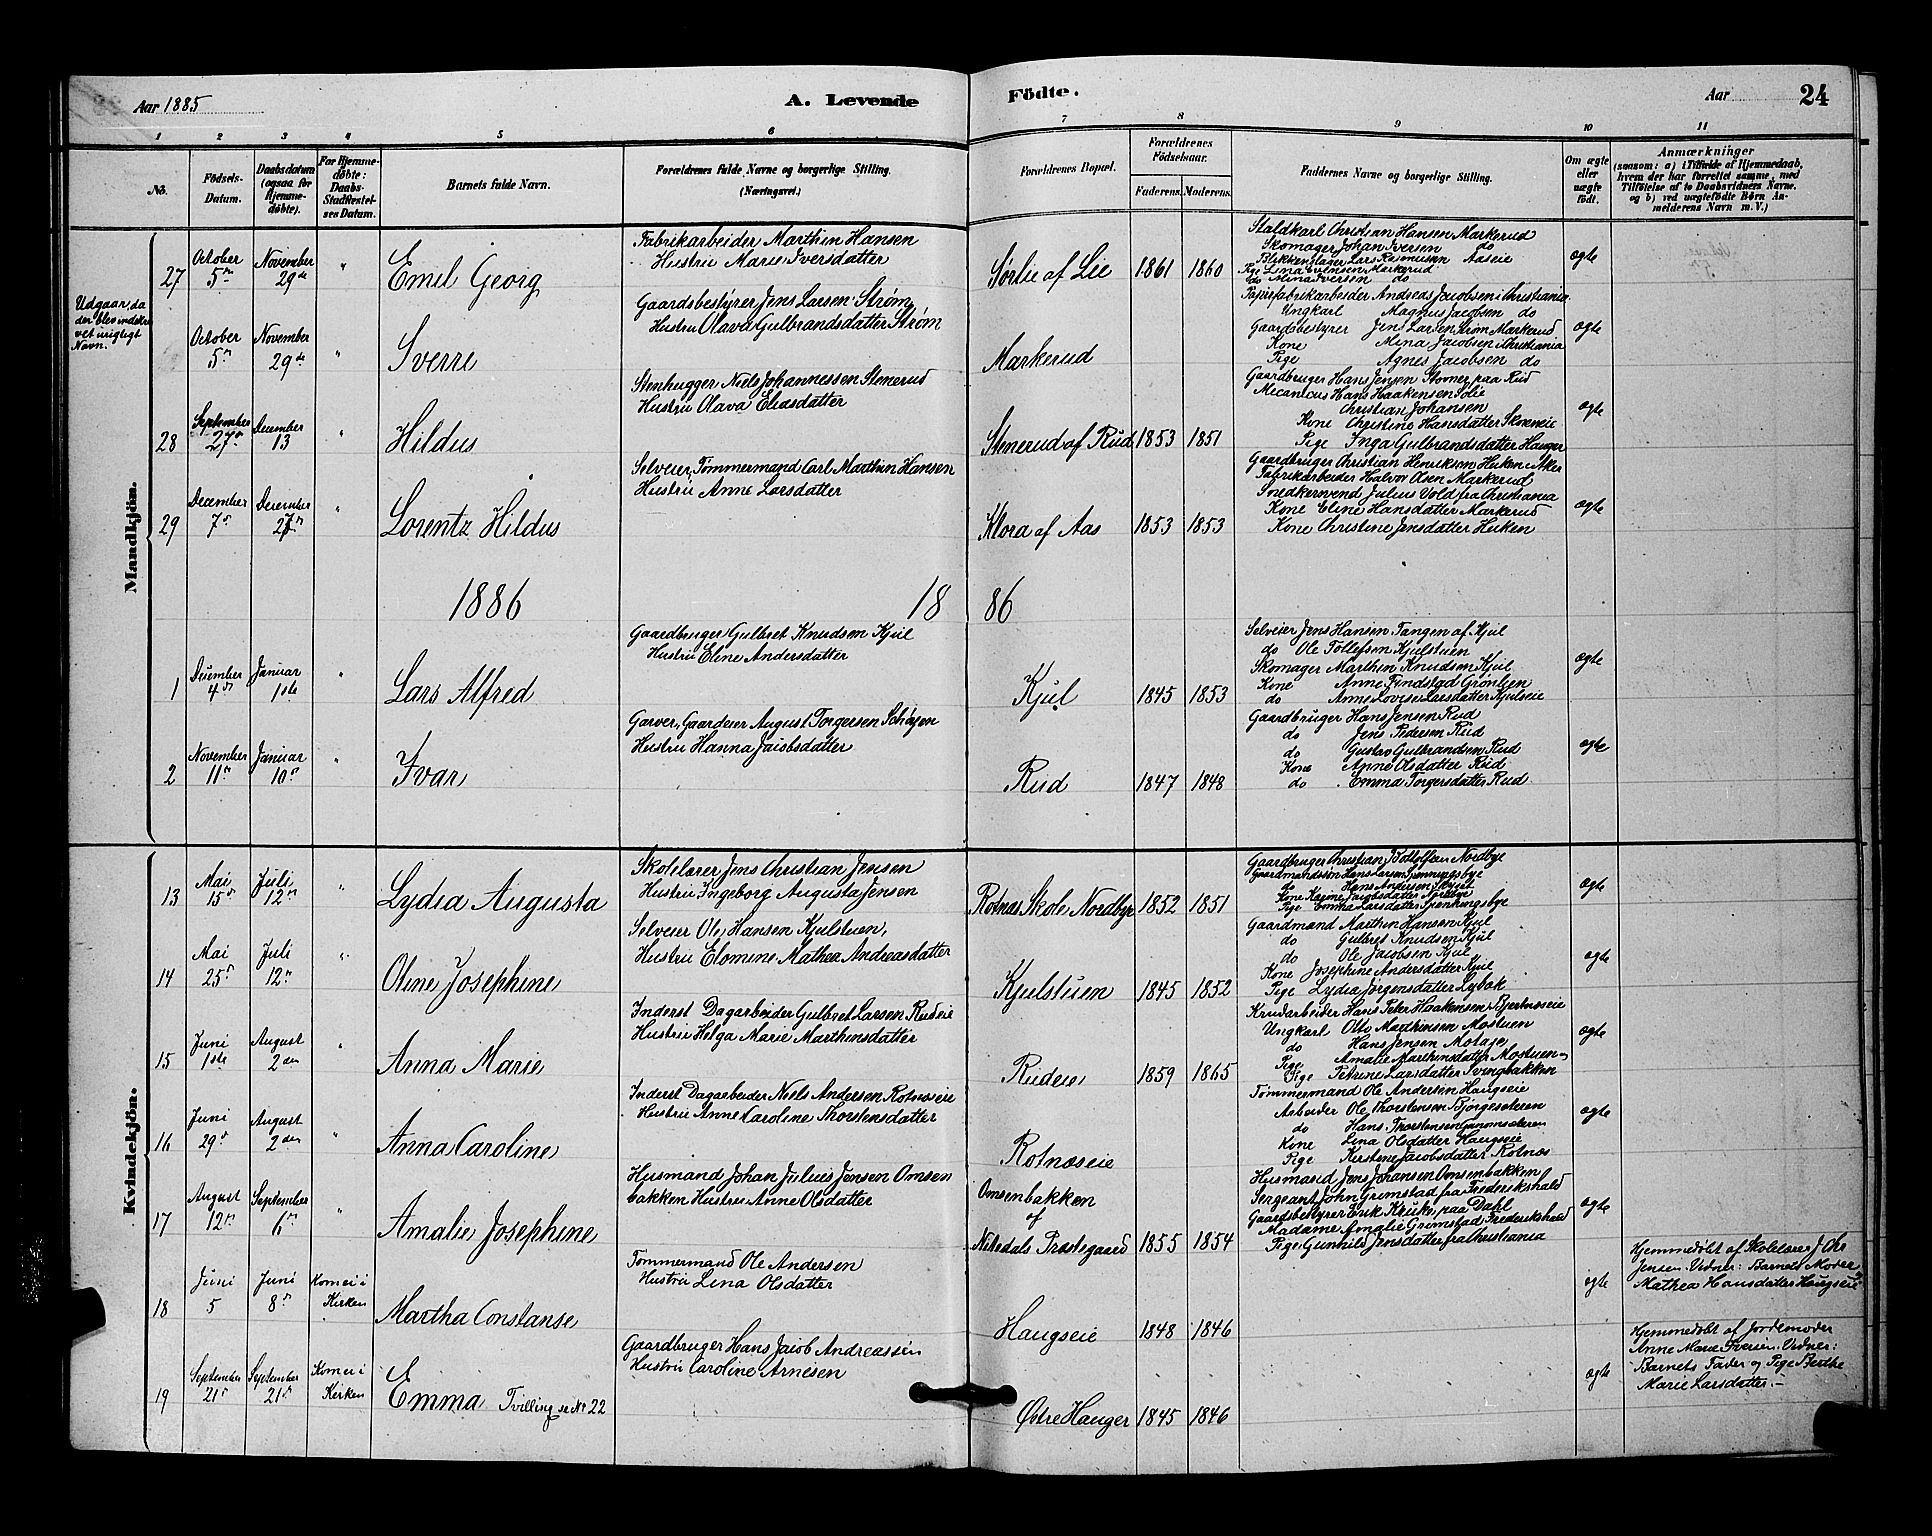 Aar 1885
A. Levende
Födte.
Aar
24
1 2 3 4 5 6 7 8 9 10 11
No.
Födsels-
Datum.
Daabsdatum
(ogsaa for
Hjemme-
døbte).
For Hjemme-
døbte:
Daabs-
Stadfæstel-
ses Datum.
Barnets fulde Navn.
Forældrenes fulde Navne og borgerlige Stilling.
(Næringsvei.)
Forældrenes Bopæl.
Forældrenes
Födselsaar.
Faderens. Moderens.
Faddernes Navne og borgerlige Stilling.
Om ægte
eller
uægte
født.
Anmærkninger
(saasom: a) i Tilfælde af Hjemmedaab,
hvem der har forrettet samme, med
Tilföielse af to Daabsvidners Navne.
og b) ved uægtefödte Börn An-
melderens Navn m. V.)
Mandkjön.
27
October
5te
November
29de
"
Emil Georg
Fabrikarbeider Marthin Hansen
Hustru Marie Iversdatter
Sørlie af Lie
1861
1860
Staldkarl Christian Hansen Markerud
Skomager Johan Iversen do
Blikkenslager Lars Rasmusen Aaseie
Pige Lina Svensen Markerud
do Mina Iversen do
ægte
Udgaar, da
der blev indskre
vet urigtigt
Navn.
October
5te
November
29de
"
Sverre
Gaardsbestyrer Jens Larsen Strøm
Hustru Olava Gulbrandsdatter Strøm
Markerud
Papirfabrikarbeider Andreas Jacobsen i Christiania
Ungkarl Magnus Jacobsen do
Gaardsbestyrer Jens Larsen Strøm Markerud
Kone Mina Jacobsen i Christiania
Pige Agnes Jacobsen do
ægte
28
September
27de
December
13
"
Hildus
Stenhugger Niels Johannessen Stenerud
Hustru Olava Eliasdatter
Stenerud af Rud
1853
1851
Gaardbruger Hans Jensen Stovner paa Rud
Mecanicus Hans Haakensen Solie
Christian Johansen
Kone Christine Hansdatter Skoreneie
Pige Inga Gulbrandsdatter Hauger
ægte
29
December
7de
December
27de
"
Lorentz Hildus
Selveier, Tømmermand Carl Marthin Hansen
Hustru Anne Larsdatter
Mora af Aas
1853
1853
Gaardbruger Christian Henriksen Huken i Aker
Fabrikarbeider Halvor Olsen Markerud
Snedkersvend Julius Vold fra Christiania
Kone Eline Hansdatter Markerud
Kone Christine Jensdatter Huken
ægte
1886
18 86
1
December
4de
Januar
1ste
"
Lars Alfred
Gaardbruger Gulbret Knudsen Kjul
Hustru Eline Andersdatter
Kjul
1845
1853
Selveier Jens Hansen Tangen af Kjul
do Ole Tollefsen Kjulstuen
Skomager Marthin Knudsen Kjul
Kone Anne Findstad Grønlien
do Anne Lovise Larsdatter Kjulseie
ægte
2
November
11te
Januar
10de
"
Ivar
Garver, Gaardeier August Torgersen Schøyen
Hustru Hanna Jacobsdatter
Rud
1847
1848
Gaardbruger Hans Jensen Rud
do Jens Pedersen Rud
do Gustav Gulbrandsen Rud
Kone Anne Olsdatter Rud
do Emma Torgersdatter Rud
ægte
Kvindekjön.
13
Mai
15de
Juli
12te
"
Lydia Augusta
Skolelærer Jens Christian Jensen
Hustru Ingeborg Augusta Jensen
Rotnæs Skole Nordbye
1852
1851
Gaardbruger Christian Bottolfsen Nordbye
Gaardmandssøn Hans Larsen Spenningsbye
do Hans Andersen Skyset
Kone Karine Jacobsdatter Nordbye
Pige Emma Larsdatter Spenningsbye
ægte
14
Mai
25de
Juli
12te
"
Oline Josephine
Selveier Ole Hansen Kjulstuen,
Hustru Elomine Mathea Andreasdatter
Kjulstuen
1845
1852
Gaardmand Marthin Hansen Kjul
do Gulbret Knudsen Kjul
do Ole Jacobsen Kjul
Kone Josephine Andersdatter Kjul
Pige Lydia Jørgensdatter Lybæk
ægte
15
Juni
1ste
August
2den
"
Anna Marie
Inderst Dagarbeider Gulbret Larsen Rudeie
Hustru Helga Marie Marthinsdatter
Rudeie
1859
1865
Krudarbeider Hans Peter Haakensen Bjertnæseie
Ungkarl Otto Marthinsen Mostuen
do Hans Jensen Motajet
Pige Amalie Marthinsdatter Mostuen
Pige Petrine Larsdatter Svingbakken
ægte
16
Juni
29de
August
2den
"
Anna Caroline
Inderst Dagarbeider Niels Andersen Rotnæseie
Hustru Anne Caroline Thorstensdatter
Rotnæseie
Tømmermand Ole Andersen Haugseie
Arbeider Ole Thorstensen Bjørgesæteren
do Hans Thorstensen
Kone Lina Olsdatter Haugseie
Pige Kerstene Jacobsdatter Rotnæs
ægte
17
August
12te
September
6te
"
Amalie Josephine
Husmand Johan Julius Jensen Omsen
bakken Hustru Anne Olsdatter
Omsenbakken
af
Nitedals Præstegaard
1855
1854
Husmand Jens Johansen Omsenbakken
Sergeant John Grimstad fra Frederikshald
Gaardsbestyrer Erik Kruke, paa Dahl
Madame Amalie Grimstad, Frederikshald
Pige Gunhild Jensdatter fra Christiania
ægte
18
Juni
5
Juni
8de
Kom ei i
Kirken
Martha Constanse
Tømmermand Ole Andersen
Hustru Lina Olsdatter
Haugseie
1848
1846
ægte
Hjemmedøbt af Skolelærer J. Chr.
Jensen. Vidner: Barnets Moder og
Mathea Hansdatter Haugseie
19
September
21de
September
21de
Kom ei i
Kirken
Emma Tvilling, se No 22
Gaardbruger Hans Jacob Andreassen
Hustru Caroline Arnesen
Østre Hauger
1845
1846
ægte
Hjemmedøbt af Jordemoder
Anne Marie Iversen. Vidner:
Barnets Fader og Pige Berthe
Marie Larsdatter.—